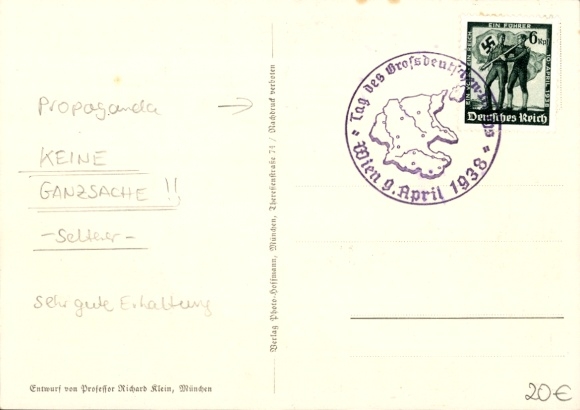 Propaganda →
KEINE
GANZSACHE !!
-Selten-
sehr gute Erhaltung
Entwurf von Professor Richard Klein, München
Verlag Photo-Hoffmann, München, Theresienstraße 74 / Nachdruck verboten
Tag des Großdeutschen Reichs
Wien 9. April 1938
EIN FÜHRER
EIN VOLK EIN REICH
10. APRIL 1938
6 Rpf
Deutsches Reich
20€